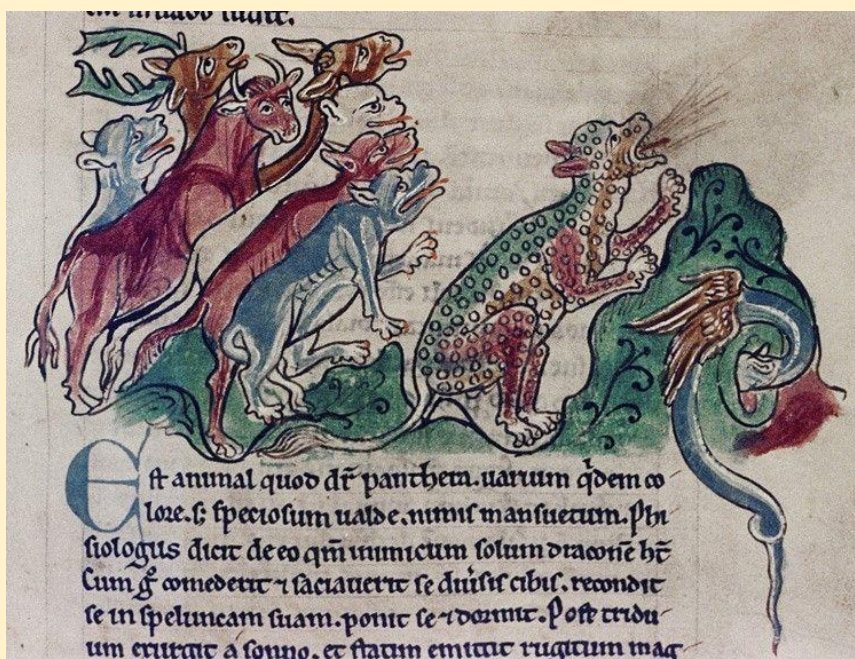 fugit.
Est animal quod dr̄ panthera. uarium qͥdem co
lore. s; speciosum ualde. nimis mansuetum. Phi
siologus dicit de eo qm̄ inimicum solum draconē ht̄
Cum gͦ comederit ⁊ saciauerit se diu'sis cibis. recondit
se in speluncam suam. ponit se ⁊ dormit. Post tridu
um exurgit a sonno. et statim emittit rugitum mag